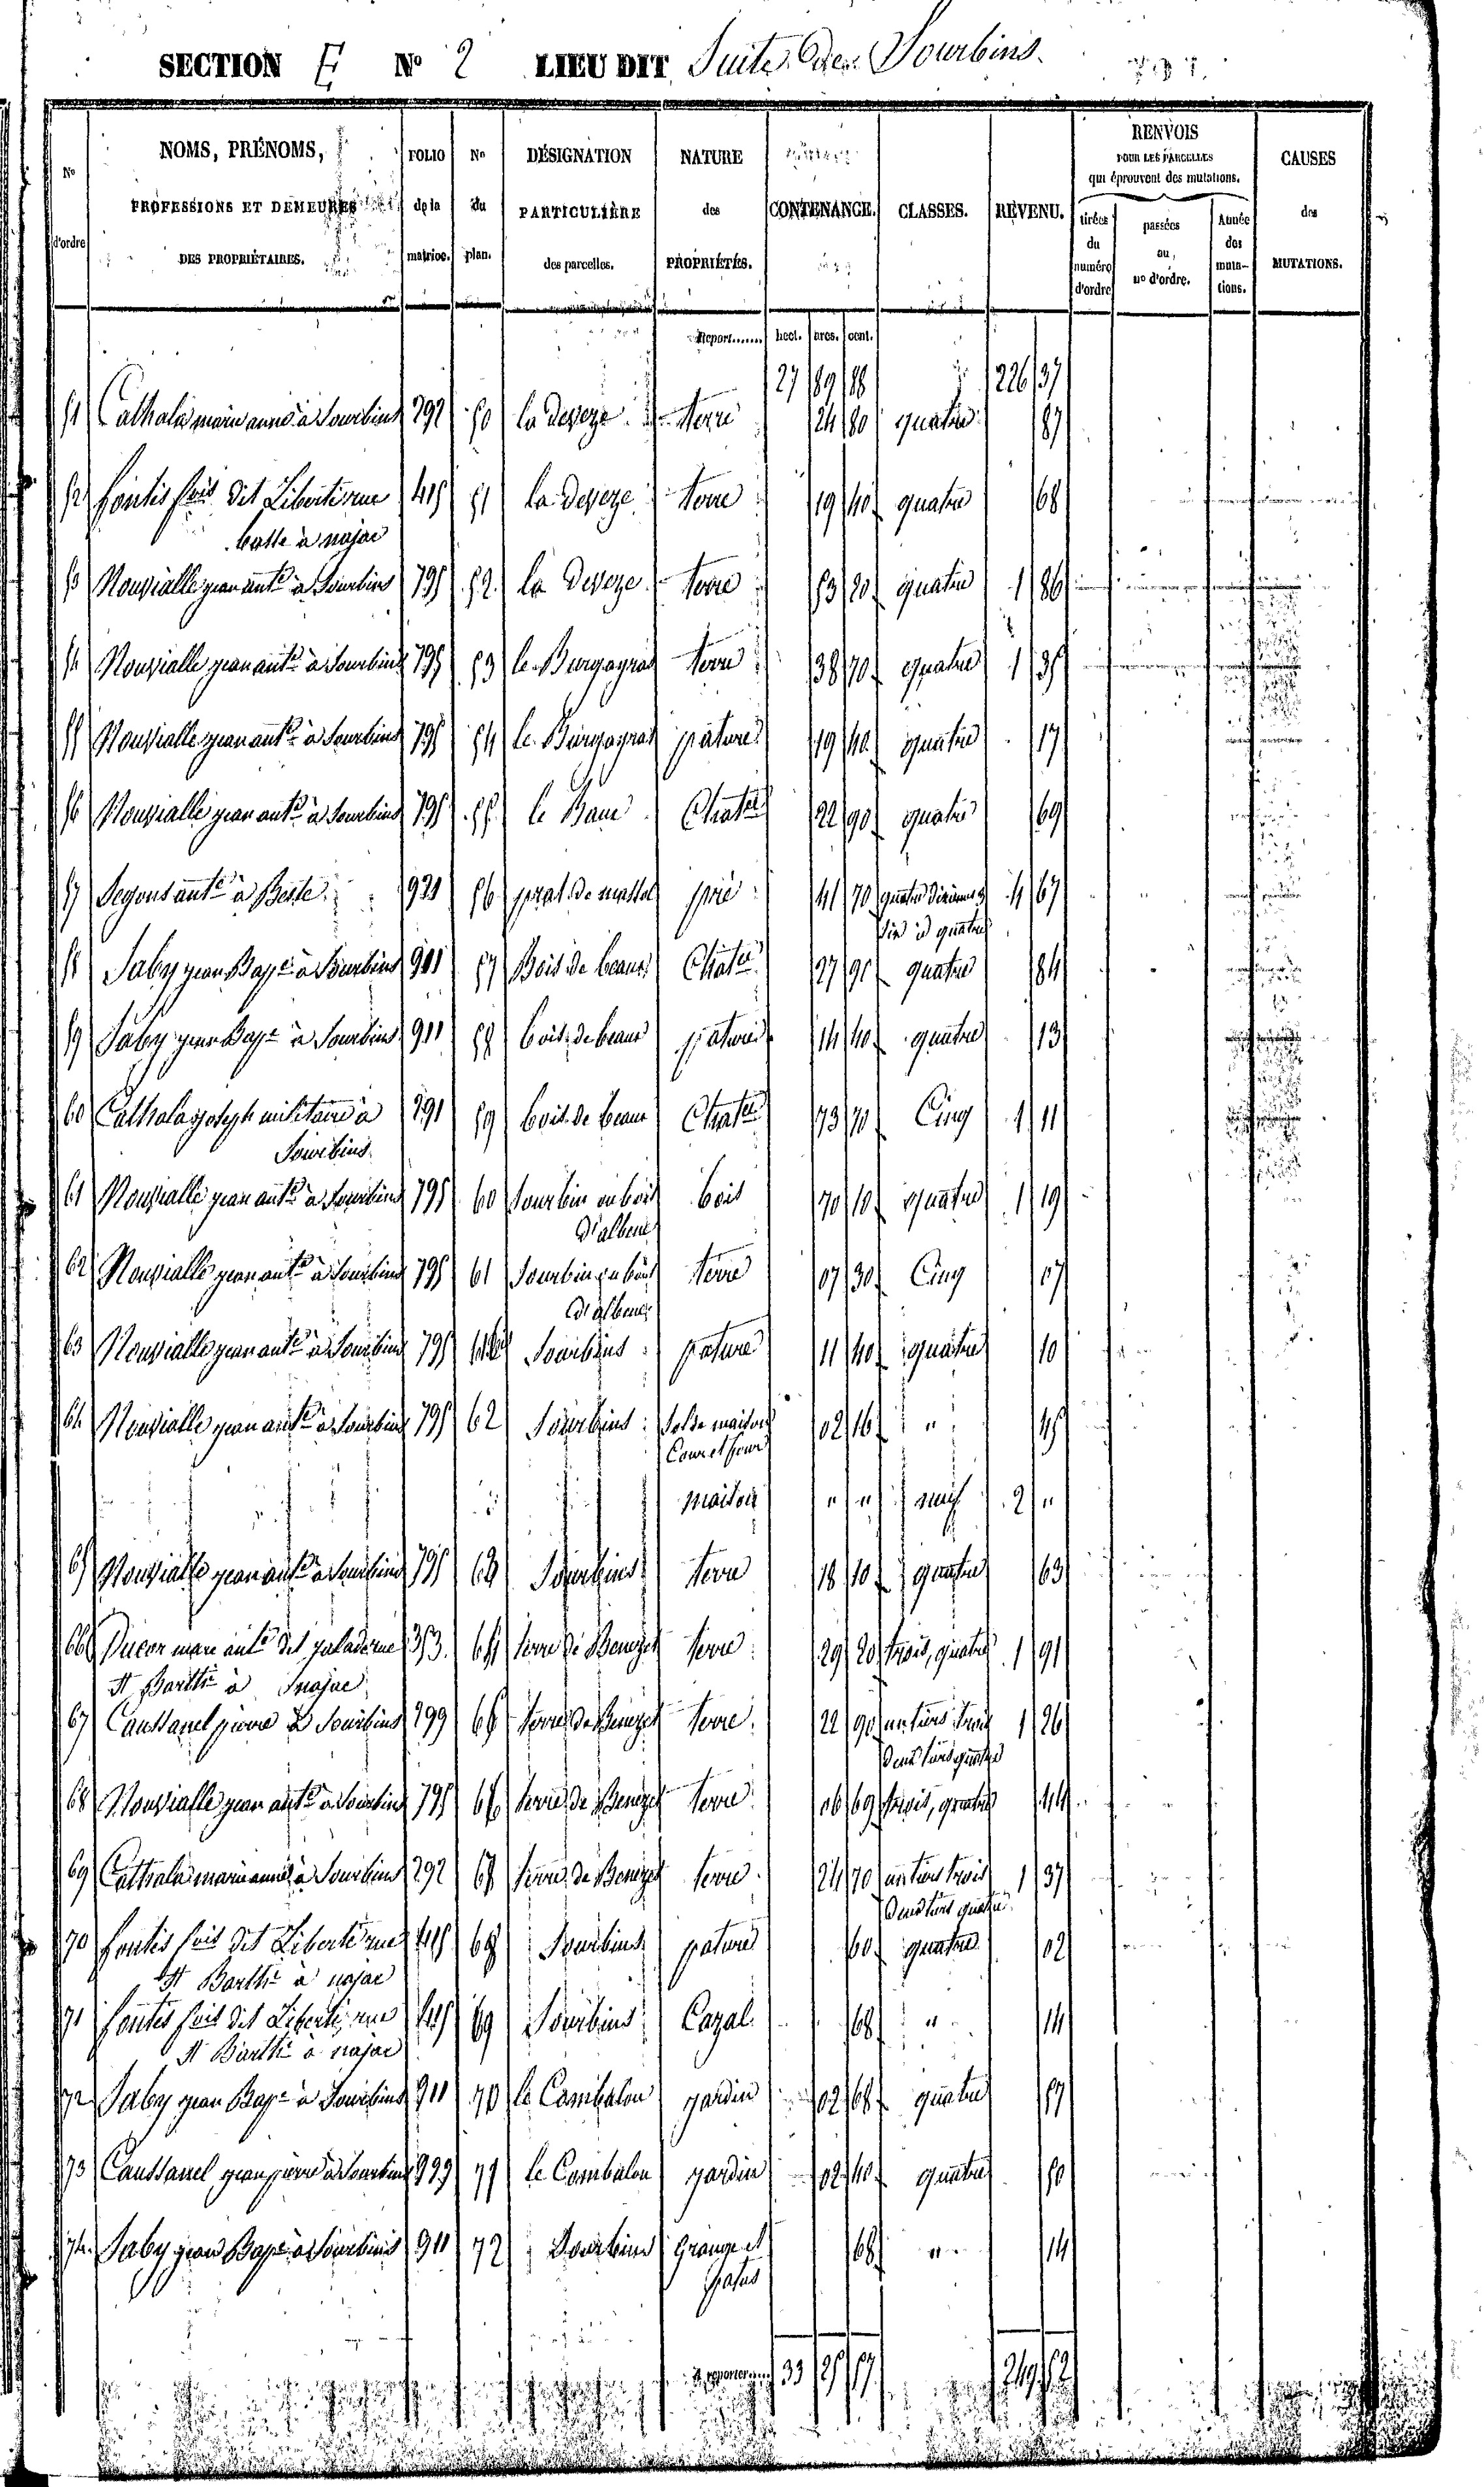 SECTION E N° 2 LIEU DIT Suite des Sourbins.
N° d'ordre
NOMS, PRÉNOMS, PROFESSIONS ET DEMEURES DES PROPRIÉTAIRES.
FOLIO de la matrice.
N° du plan.
DÉSIGNATION PARTICULIÈRE des parcelles.
NATURE des PROPRIÉTÉS.
CONTENANCE.
CLASSES.
REVENU.
RENVOIS POUR LES PARCELLES qui éprouvent des mutations.
tirées du numéro d'ordre
passées au n° d'ordre.
Année des mutations.
CAUSES des MUTATIONS.
Report....... hect. ares. cent.
27 89 88 226 37
51 Cathala marie anne à Sourbins 292 50 la deveze terre 24 80 quatre 87
52 fontis fois dit Liberté rue 415 51 la deveze terre 19 40 quatre 68
basse à najac
53 Nouvialle jean ante à Sourbins 795 52 la deveze terre 53 20 quatre 1 86
54 Nouvialle jean ante à Sourbins 795 53 le Burgayras terre 38 70 quatre 1 35
55 Nouvialle jean ante à Sourbins 795 54 le Burgayras pature 19 40 quatre 17
56 Nouvialle jean ante à Sourbins 795 55 le Baur Chatai 22 90 quatre 69
57 Segons ante à Beste 921 56 prat de mattet pré 41 70 quatre dixiemes 3 4 67
six id quatre
58 Saby jean Bapte à Sourbins 911 57 Bois de beaur Chatai 27 90 quatre 84
59 Saby jean Bapte à Sourbins 911 58 bois de beaur pature 14 40 quatre 13
60 Cathala joseph militaire à 291 59 bois de beaur Chatai 73 70 Cinq 1 11
Sourbins
61 Nouvialle jean ante à Sourbins 795 60 Sourbin ou bois bois 70 10 quatre 1 19
d'albene
62 Nouvialle jean ante à Sourbins 795 61 Sourbin ou bois terre 07 30 Cinq 07
d'albene
63 Nouvialle jean ante à Sourbins 795 61 bis Sourbins pature 11 40 quatre 10
64 Nouvialle jean ante à Sourbins 795 62 Sourbins Sol de maison 02 16 " 45
Cour et four
maison " " neuf 2 "
65 Nouvialle jean ante à Sourbins 795 63 Sourbins terre 18 10 quatre 63
66 Ducor marc ante dit paladerne 353 64 terre de Benezet terre 29 20 trois, quatre 1 91
St Barthe à najac
67 Caussanel pierre à Sourbins 299 65 terre de Benezet terre 22 90 un tiers trois 1 26
deux tiers quatre
68 Nouvialle jean ante à Sourbins 795 66 terre de Benezet terre 06 69 trois, quatre 44
69 Cathala marie anne à Sourbins 292 67 terre de Benezet terre 24 70 un tiers trois 1 37
deux tiers quatre
70 fontis fois dit Liberté rue 415 68 Sourbins pature 60 quatre 02
St Barthe à najac
71 fontis fois dit Liberté rue 415 69 Sourbins Cazal 68 " 14
St Barthe à najac
72 Saby jean Bapte à Sourbins 911 70 le Cambalou jardin 02 68 quatre 57
73 Caussanel jean pierre à Sourbins 299 71 le Cambalou jardin 02 40 quatre 50
74 Saby jean Bapte à Sourbins 911 72 Sourbins Grange et 68 " 14
patus
A reporter..... 33 25 57 249 52